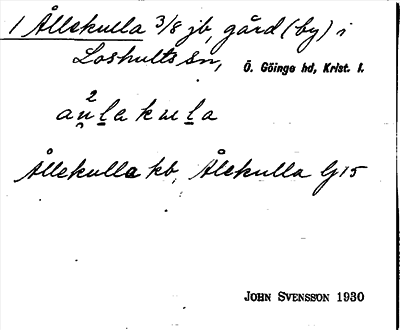 1 Ållskulla 3/8 jb, gård (by) i
Loshults sn, Ö. Göinge hd, Krist. l.
Ållskulla kb, Ålskulla G15
JOHN SVENSSON 1930